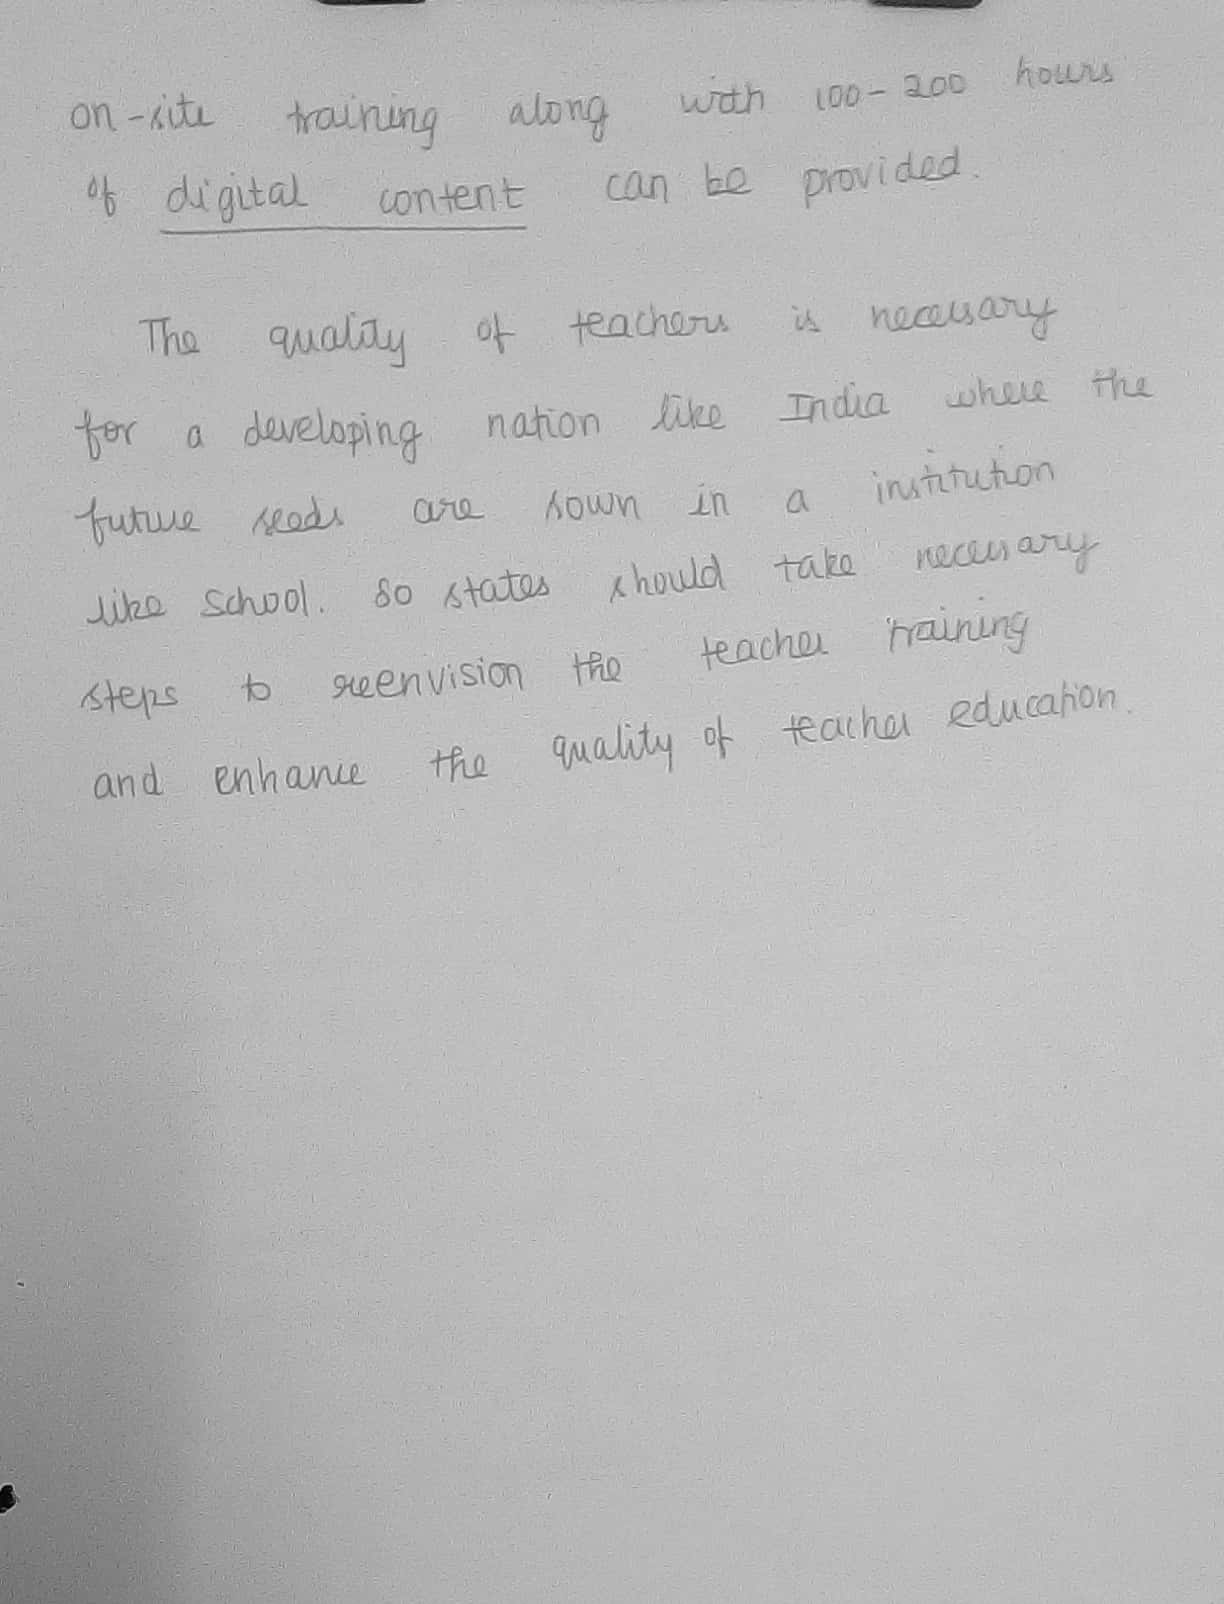 on-site training along with 100-200 hours
of digital content can be provided.
The quality of teachers is necessary
for a developing nation like India where the
future seeds are sown in a institution
like school. So states should take necessary
steps to reenvision the teacher training
and enhance the quality of teacher education.